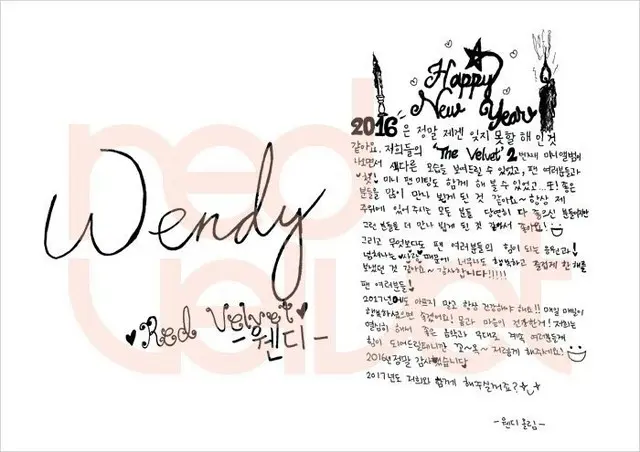 red
velvet
Wendy
Red Velvet
-웬디-
Happy
New Year
2016은 정말 제겐 잊지 못할 해인 것
같아요. 저희들의 'The Velvet' 2번째 미니앨범에
나오면서 색다른 모습을 보여드릴 수 있었고, 팬 여러분들과
첫 미니 팬미팅도 함께 해 볼 수 있었고...또! 좋은
분들을 많이 만나 뵙게 된 것 같아요~ 항상 제
주위에 있어 주시는 모든 분들 당연히 다 좋으신 분들이지만
그런 분들을 더 만나 뵙게 된 것 같아서 좋아요!
그리고 무엇보다도 팬 여러분들의 힘이 되는 응원과!
넘쳐나는 사랑 때문에 너무나도 행복하고 즐겁게 한 해를
보냈던 것 같아요~ 감사합니다!!!!!
팬 여러분들!
2017년에도 아프지 말고 항상 건강해야 해요!! 매일 매일이
행복하셨으면 좋겠어요! 몸과 마음이 건강한거! 저희는
열심히 해서 좋은 음악과 무대로 계속 여러분들께
힘이 되어드릴테니깐 꼬~옥~ 저렇게 해주세요!
2016년 정말 감사했습니다
2017년도 저희와 함께 해주실꺼죠?
-웬디 올림-